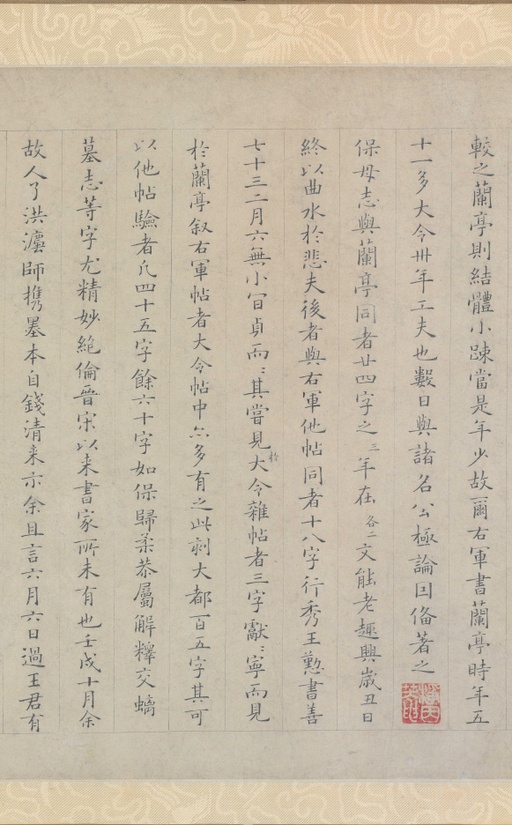 較之蘭亭則結體小踈當是年少故爾右軍書蘭亭時年五
十一多大令卅年工夫也數日與諸名公極論囙俻著之
保母志與蘭亭同者廿四字之三年在各二文能老趣興歲丑日
終以曲水於悲夫後者與右軍他帖同者十八字行秀王懃書善
七十三二月六無小冝貞而〻其嘗見於大令雜帖者三字獻〻寧而見
於蘭亭叙右軍帖者大令帖中亦多有之此刻大都百五字其可
以他帖驗者凡四十五字餘六十字如保歸柔恭屬解釋交螭
墓志等字尤精妙絕倫晉宋以来書家所未有也壬戌十月余
故人了洪瀼師携墓本自錢清来示余且言六月六日過王君有